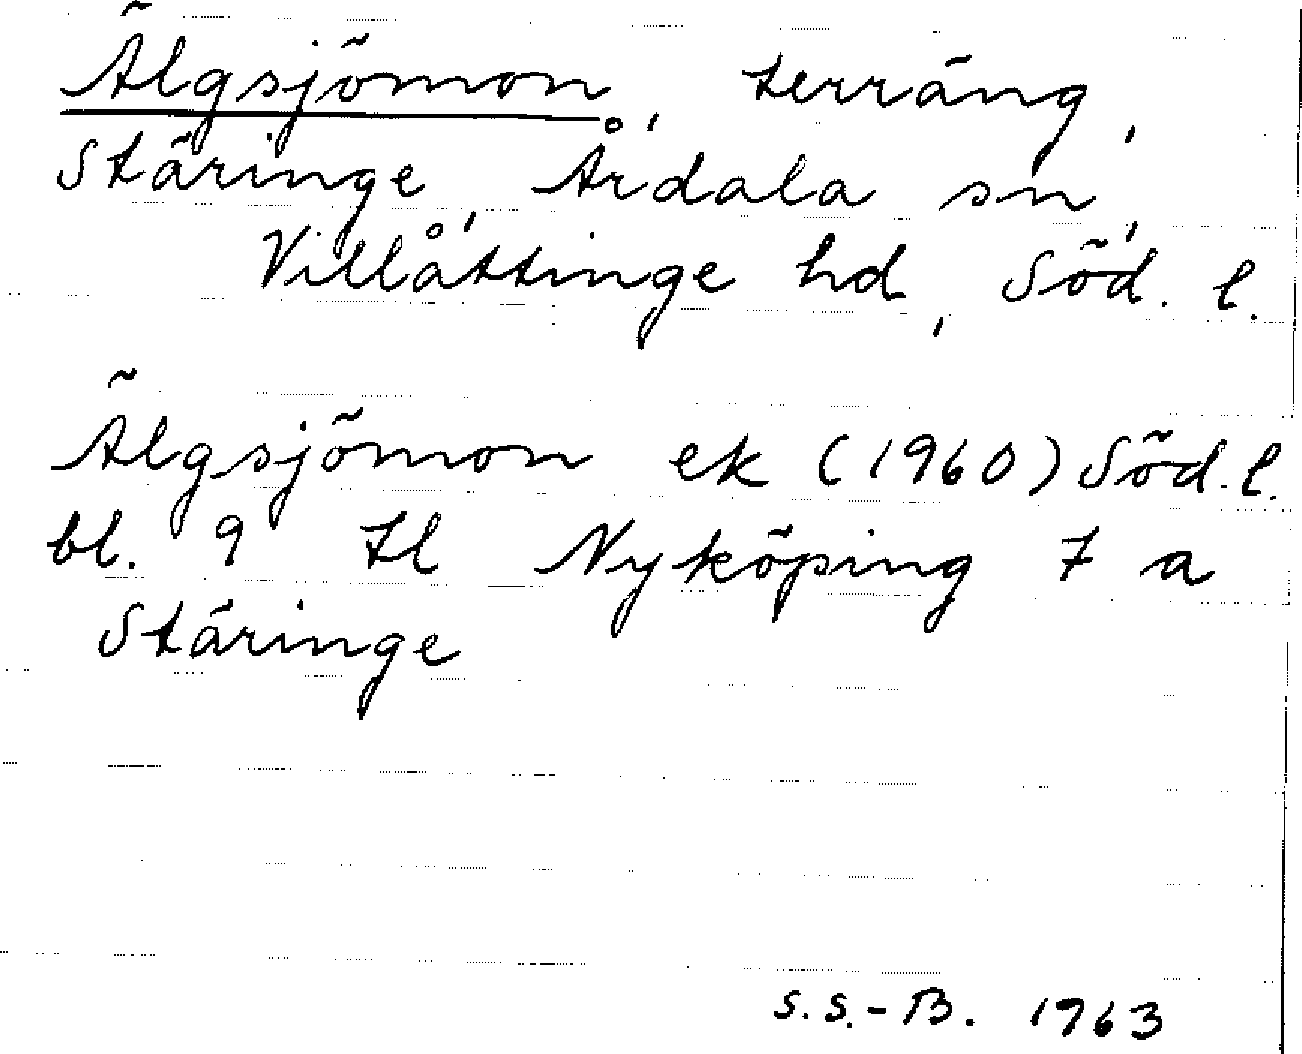 Älgsjömon, terräng,
Stäringe, Årdala sn,
Villåttinge hd, Söd. l.
Älgsjömon ek (1960) Söd. l.
bl. 9 tl Nyköping 7 a
Stäringe
S.S.-B. 1963